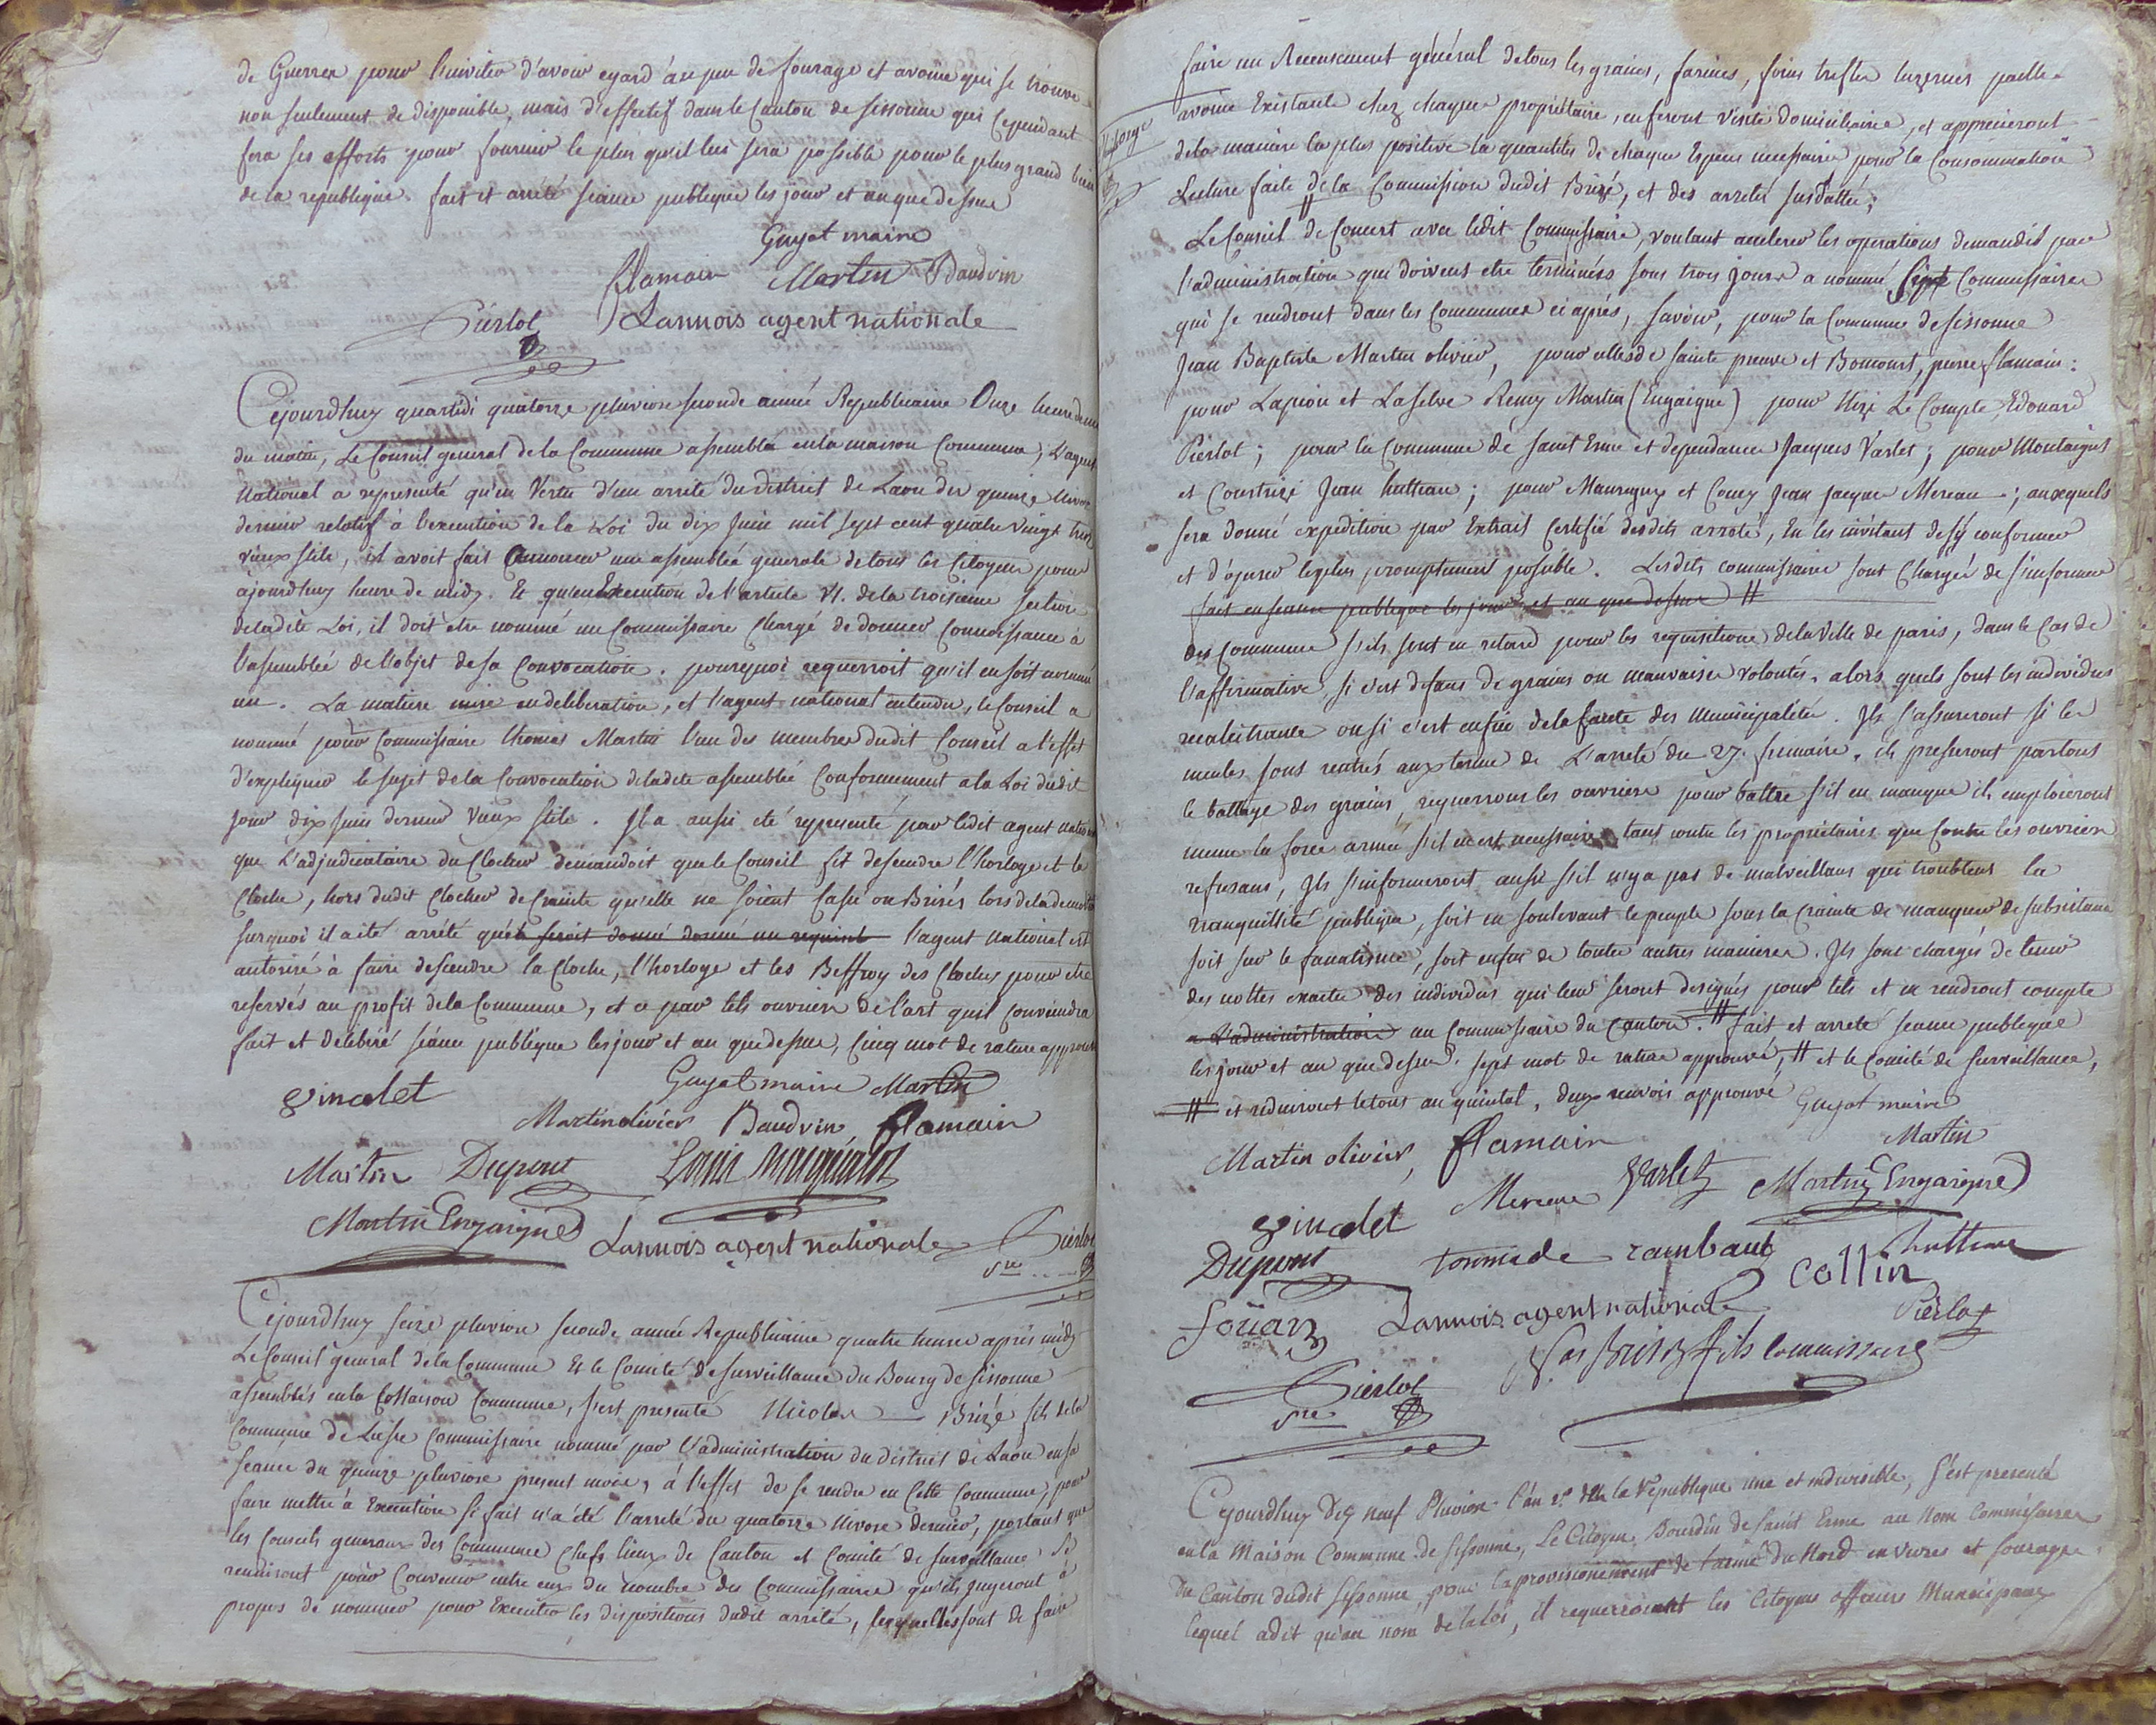 de Guerre pour l'inviter d'avoir egard au peu de fourage et avoine qui se trouve
non seulement de disponible, mais d'effectif dans le Canton de sissonne qui Cependant
fera ses efforts pour fournir le plus qu'il lui sera possible pour le plus grand bien
de la republique. fait et arrêté séance publique les jour et an que dessus
Guyot maire
flamain Martin Baudvin
Pierlot Lannois agent nationale
Cejourdhuy quartidi quatorze pluviose seconde année Republicaine Onze heures
du matin, Le Conseil general de la Commune assemblé en la maison Commune, L'agent
National a representé qu'en Vertu d'un arrêté du district de Laon du quinze Nivose
dernier relatif à l'execution de la Loi du dix Juin mil sept cent quatre vingt treize
vieux stile, il avoit fait annoncer une assemblée generale de tous les Citoyens pour
ajourdhuy heure de midy. Et qu'en Execution de l'article VI. de la troisieme section
de ladite Loi, il doit etre nommé un Commissaire Chargé de donner Connoissance à
l'assemblée de l'objet de sa Convocation. pourquoi requerroit qu'il en soit nommé
un. La matiere mise en deliberation, et l'agent national entendu, le Conseil a
nommé pour Commissaire thomas Martin l'un des membres dudit Conseil a l'effet
d'expliquer le sujet de la Convocation de ladite assemblée Conformement a la Loi dudit
jour dix juin dernier Vieux stile. Il a aussi été representé par ledit agent national
que L'adjudicataire du Clocher demandoit que le Conseil fit descendre l'horloge et la
Cloche, hors dudit Clocher de Crainte qu'elle ne soient Cassé ou Brisés lors de la demolition
surquoi il a été arrêté qu'il seroit donné donné un requisit l'agent National est
autorisé à faire descendre la Cloche, l'horloge et les Beffroy des Cloches pour etre
reservés au profit de la Commune, et ce par tels ouvriers de l'art quil Conviendra
fait et deliberé séance publique les jour et an que dessus, Cinq mot de rature approuvé
ginalet Guyot maire Martin
Martin olivier Baudvin flamain
Martin Dupont Louis
Martin Engaigne Lannois agent nationale Pierlot
sre
Cejourdhuy seize pluviose seconde année Republicaine quatre heures après midy
Le Conseil general de la Commune Et le Comité de surveillance du Bourg de sissonne
assemblés en la Maison Commune, s'est presenté Nicolas Brizé fils de la
Commune de Liesse Commissaire nommé par l'administration du district de Laon en sa
seance du quinze pluviose present mois, à l'effet de se rendre en Cette Commune, pour
faire mettre à Execution si fait n'a été l'arreté du quatorze Nivose dernier, portant que
les Conseils generaux des Communes Chefs lieux de Canton et Comité de surveillance se
reuniront pour Convenir entre eux du nombre des Commissaires qu'ils jugeront à
propos de nommer pour Executer les dispositions dudit arrêté, lesquelles sont de faire
faire un Recensement général de tous les grains, farines, foins trefles luzernes paille
avoine Existante chez chaque propriétaire, en feront visite domiciliaire, et apprecieront
de la maniere la plus positive la quantité de chaque Espece necessaire pour la Consommation
Lecture faite de la Commission dudit Brizé, et des arretés susdattés;
Le Conseil de Concert avec ledit Commissaire, voulant accelerer les operations demandés par
l'administration qui doivent etre terminés sous trois jours a nommé sept Commissaires
qui se rendront dans les Communes ci après, savoir, pour la Commune de sissonne
Jean Baptiste Martin olivier, pour celles de sainte preuve et Boncourt, pierre flamain:
pour Lapion et La selve Remy Martin (Engaigne) pour Nizi Le Compte, Edouard
Pierlot; pour la Commune de saint Erme et dependances Jacques Varlet; pour Montaigut
et Courtrizi Jean hutteau; pour Mauregny et Coucy Jean Jacques Mereau; auxquels
sera donné expedition par Extrait Certifié desdits arreté, En les invitant de sÿ conformer
et d'operer le plus promptement possible. Lesdits commissaires sont Chargés de s'informer
fait en seance publique les jour et an que dessus #
des Communes s'ils sont en retard pour les requisitions de la Ville de paris, dans le Cas de
l'affirmative, si c'est defaut de grains ou mauvaises volontés, alors quels sont les individus
recalcitrants ou si c'est enfin de la faute des Municipalités. Ils s'assureront si les
meules sont rentrés aux terme de L'arreté du 27 frimaire, ils presseront partout
le battage des grains, requerrons les ouvriers pour battre s'il en manque ils emploieront
meme la force armée s'il en est necessaire tant contre les propriétaires que Contre les ouvriers
refusans, Ils s'informeront aussi s'il n'y a pas de malveillans qui troublent la
tranquillité publique, soit en soulevant le peuple sous la Crainte de manquer de subsistance
soit sur le fanatisme, soit enfin de toutes autres manieres. Ils sont chargés de tenir
des nottes exactes des individus qui leur seront designés pour tels et en rendront compte
a l'administration au Commissaire du Canton. # fait et arreté seance publique
les jour et an que dessus. sept mot de rature approuvés, # et le Comité de surveillance,
# et reduiront le tout au quintal, deux renvois approuvé Guyot maire
Martin olivier, flamain Martin
Mereau Varlet Martin Engaigne
ginalet
Dupont tommede rambaut collin hutteau
Foüan Lannois agent nationale Pierlot
Brizé fils Commissaire
Pierlot
sre
Cejourdhuy Dix neuf Pluviose l'an 2e de la République une et indivisible, s'est presenté
en la Maison Commune de sissonne, Le Citoyen Bourdin de saint Erme au Nom Commissaire
du Canton dudit sissonne, pour l'aprovisionnement de l'armé du Nord en vivres et fourage
lequel a dit qu'au nom de la loi, il requerroient les Citoyens officiers Municipaux